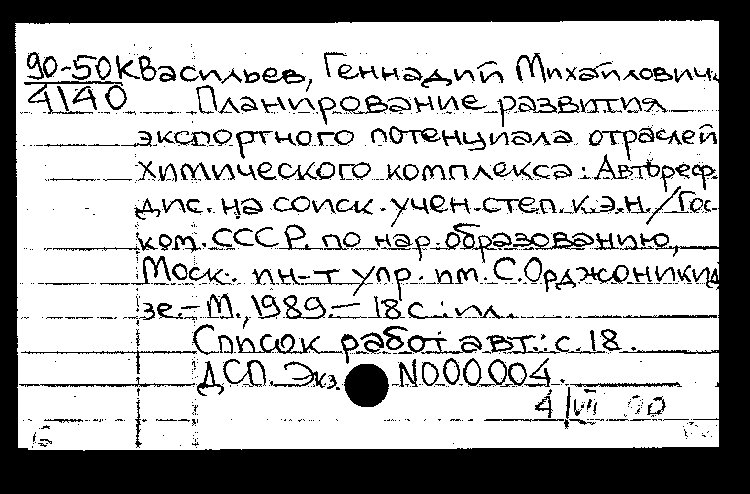 90-50К Васильев, Геннадий Михайлович.
4140 Планирование развития
экспортного потенциала отраслей
химического комплекса: Автореф.
дис. на соиск. учен. степ. к.э.н. / Гос.
ком. СССР. по нар. образованию,
Моск. ин-т упр. им. С. Орджоникид
зе. - М., 1989. - 18 с.: ил.
Список работ авт.: с. 18.
ДСП. Экз. N000004.
4/VII